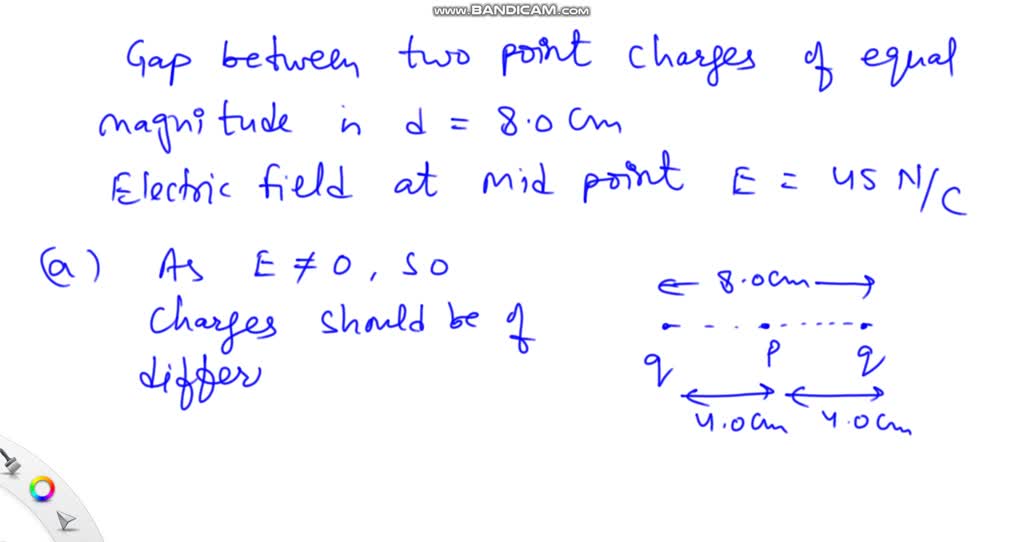 www.BANDICAM.com
Gap between two point charges of equal
magnitude is d = 8.0 cm
Electric field at mid point E = 45 N/C
(a) As E ≠ 0, so
charges should be of
differ
8.0cm
P
q q
4.0cm 4.0cm